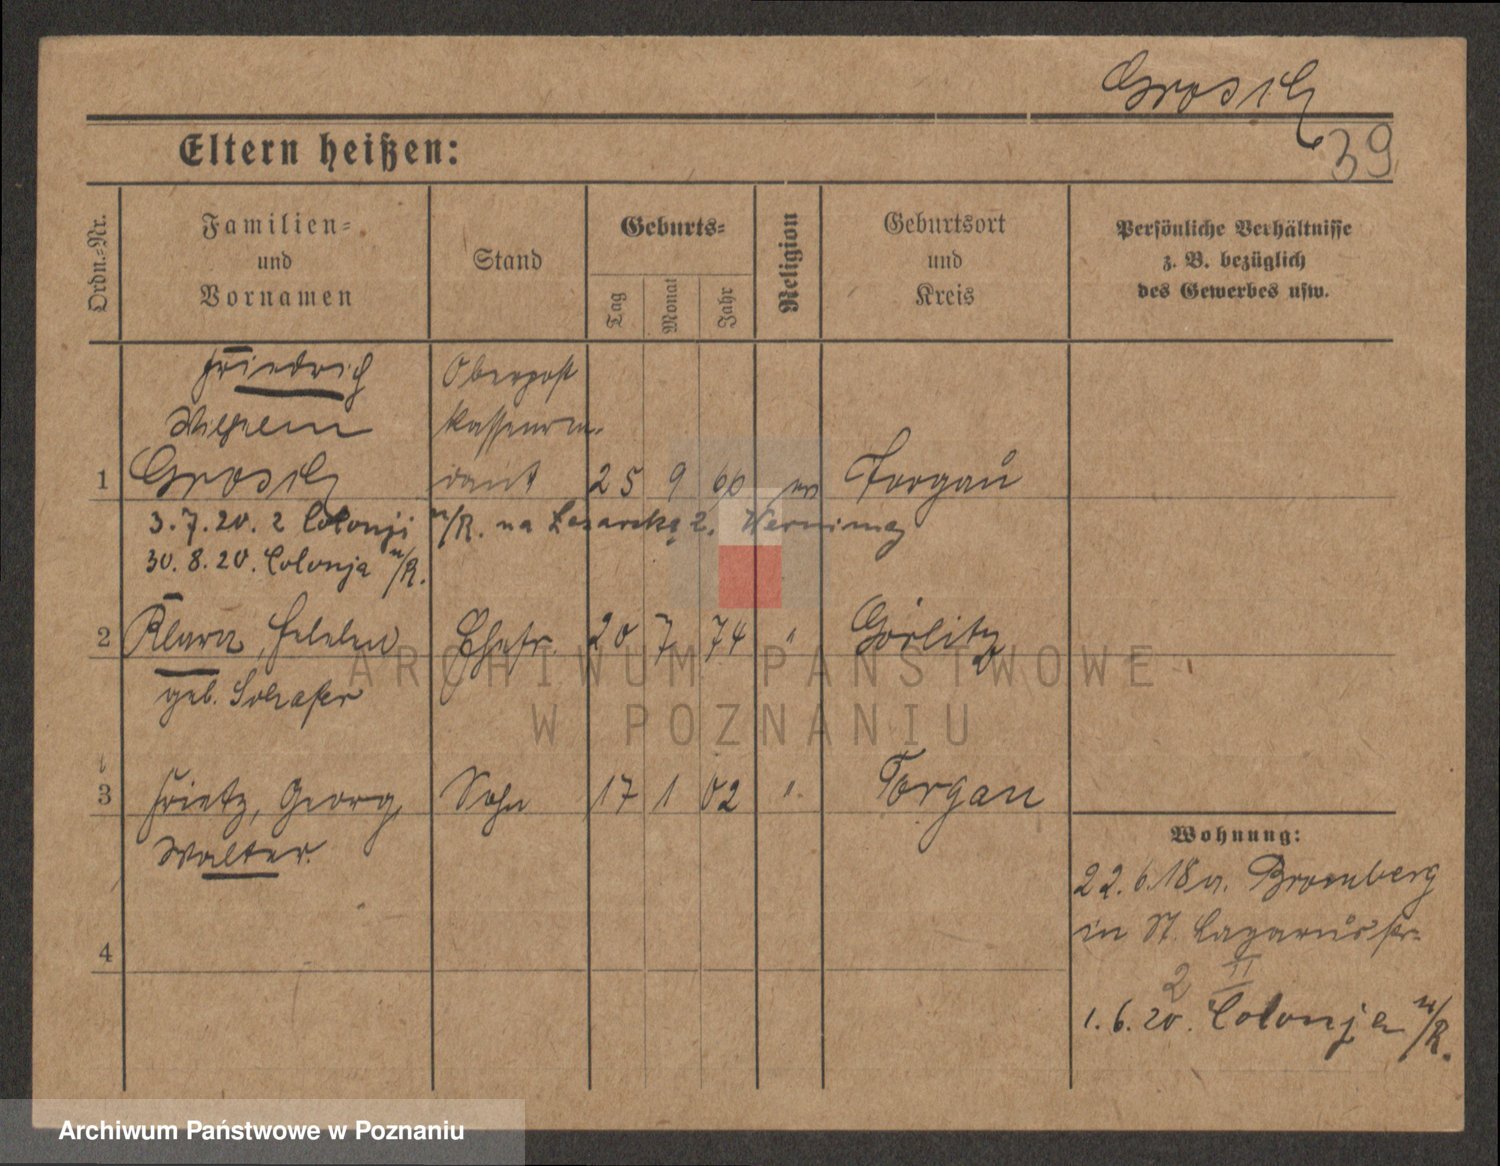 Grosch
39
Eltern heißen:
Ordn.-Nr.
Familien-
und
Vornamen
Stand
Geburts-
Tag
Monat
Jahr
Religion
Geburtsort
und
Kreis
Persönliche Verhältnisse
z. B. bezüglich
des Gewerbes usw.
Friedrich Oberpost
Wilhelm kassenren-
1 Grosch dant 25 9 60 ev Torgau
3.7.20. z Colonji n/R. na Lazarską 2.
30.8.20. Colonja n/R.
2 Klara, Helene Ehefr. 20 7 74 " Görlitz
geb. Schäfer
3 Frietz, Georg, Sohn 17 1 02 " Torgau
Walter.
4
Wohnung:
22.6.18 v. Bromberg
in St. Lazarusstr.
2 II
1.6.20. Colonja n/R.
ARCHIWUM PAŃSTWOWE
W POZNANIU
Archiwum Państwowe w Poznaniu